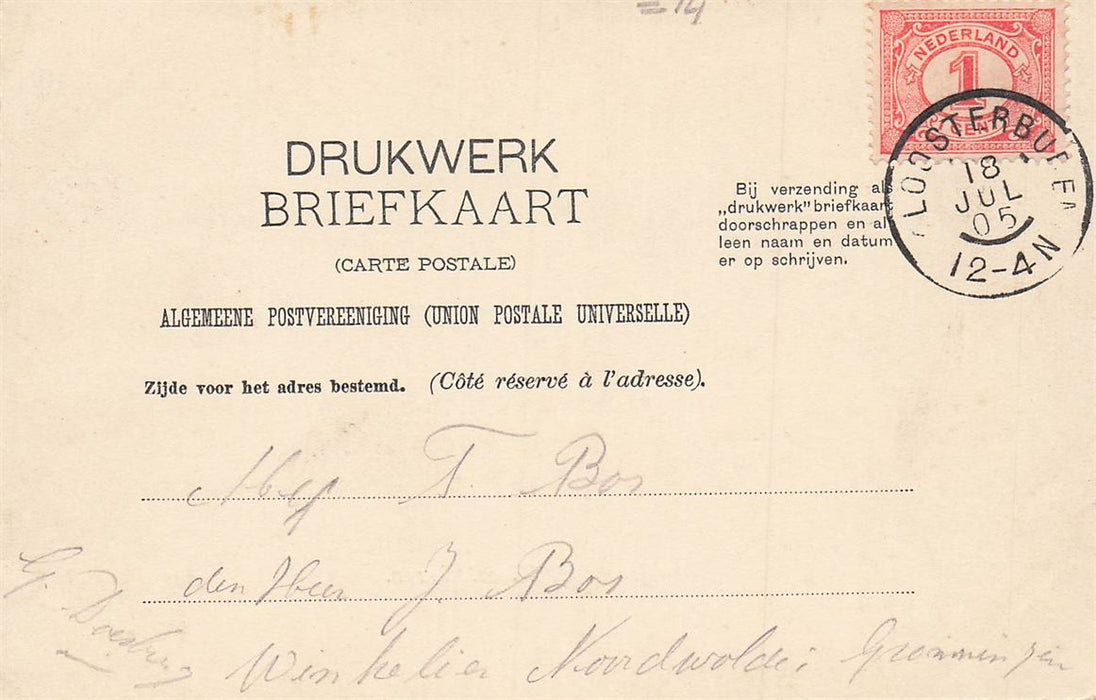 =14
NEDERLAND
1
CENT
18
JUL
05
12-4N
DRUKWERK
BRIEFKAART
(CARTE POSTALE)
Bij verzending als
„drukwerk" briefkaart
doorschrappen en al
leen naam en datum
er op schrijven.
ALGEMEENE POSTVEREENIGING (UNION POSTALE UNIVERSELLE)
Zijde voor het adres bestemd. (Côté réservé à l'adresse).
Mej T. Bos
den Heer J. Bos
Winkelier Noordwolde: Groningen
G.